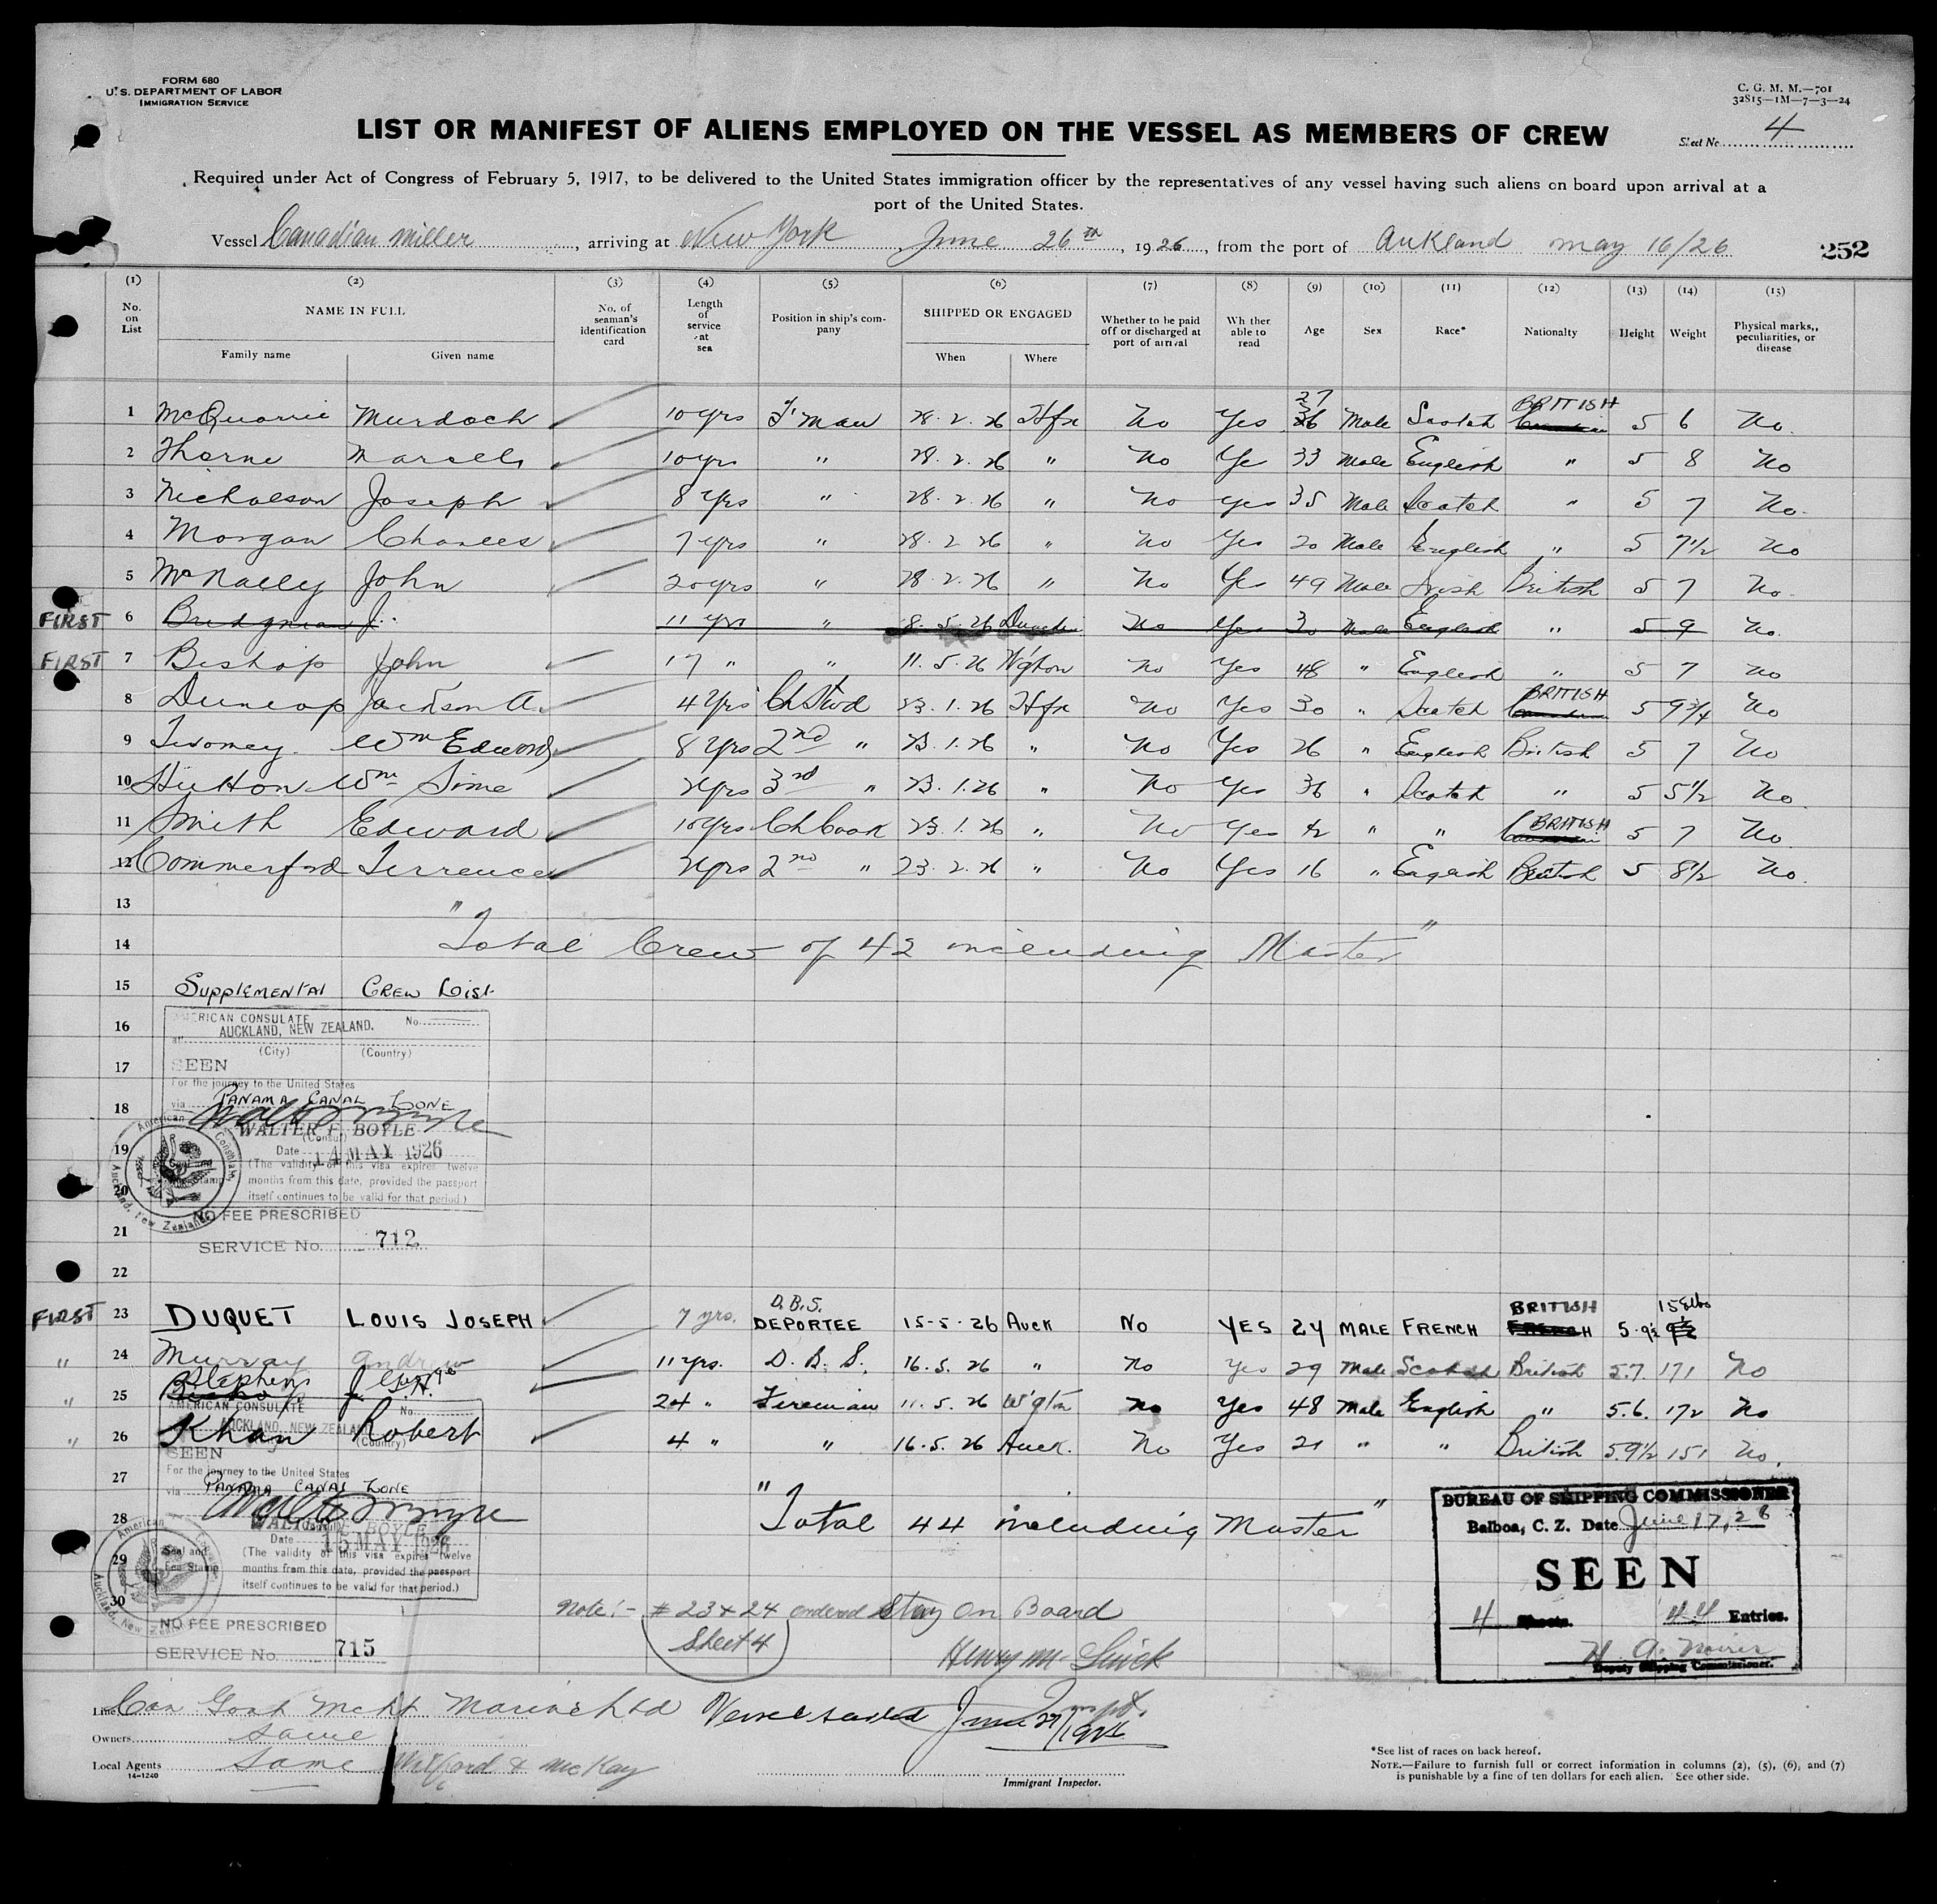 FORM 680
U.S. DEPARTMENT OF LABOR
IMMIGRATION SERVICE
C. G. M. M.—701
32815—1M—7—3—24
LIST OR MANIFEST OF ALIENS EMPLOYED ON THE VESSEL AS MEMBERS OF CREW
Sheet No. 4
Required under Act of Congress of February 5, 1917, to be delivered to the United States immigration officer by the representatives of any vessel having such aliens on board upon arrival at a
port of the United States.
Vessel Canadian Miller, arriving at New York June 26th, 1926, from the port of Aukland May 16/26
252
(1) (2) (3) (4) (5) (6) (7) (8) (9) (10) (11) (12) (13) (14) (15)
No. on List NAME IN FULL Family name Given name No. of seaman's identification card Length of service at sea Position in ship's company SHIPPED OR ENGAGED When Where Whether to be paid off or discharged at port of arrival Whether able to read Age Sex Race* Nationality Height Weight Physical marks, peculiarities, or disease
1 McQuarrie Murdoch 10 yrs F'man 28.2.26 Hfx No Yes 27 Male Scotch BRITISH 5 6 No.
2 Thorne 10 yrs " 28.2.26 " No Ye 33 Male English " 5 8 No
3 Nicholson Joseph 8 Yrs " 28.2.26 " No Yes 35 Male Scotch " 5 7 No.
4 Morgan Charles 7 yrs " 28.2.26 " No Yes 20 Male English " 5 7½ No
5 McNally John 20 yrs " 28.2.26 " No Yes 49 Male Irish British 5 7 No.
FIRST 6 Bridgman J. 11 yrs " 8.5.26 No Yes 30 Male English " 5 9 No.
FIRST 7 Bishop John 17 " " 11.5.26 W'gton No Yes 48 " English " 5 7 No
8 Dunlop Jackson A. 4 Yrs Ch Stwd 23.1.26 Hfx No Yes 30 " Scotch BRITISH 5 9¾ No
9 Twomey. Wm Edward 8 Yrs 2nd " 23.1.26 " No Yes 26 " English British 5 7 No
10 Hutton Wm Sime 2 yrs 3rd " 23.1.26 " No Yes 36 " Scotch " 5 5½ No.
11 Smith Edward 10 yrs Ch Cook 23.1.26 " No Yes 42 " " BRITISH 5 7 No.
12 Commerford Terrence 2 yrs 2nd " 23.2.26 " No Yes 16 " English British 5 8½ No.
13
14 "Total Crew of 42 including Master"
15 SUPPLEMENTAL CREW LIST.
16 AMERICAN CONSULATE No.
at AUCKLAND, NEW ZEALAND.
(City) (Country)
17 SEEN
For the journey to the United States
18 via PANAMA CANAL ZONE
WALTER F. BOYLE
(Consul)
19 Date 14 MAY 1926
(The validity of this visa expires twelve
20 months from this date, provided the passport
itself continues to be valid for that period.)
American Consulate, Auckland, New Zealand
NO FEE PRESCRIBED
21 SERVICE No. 712
22
FIRST 23 DUQUET LOUIS JOSEPH 7 yrs. D.B.S. DEPORTEE 15-5-26 Auck No YES 24 MALE FRENCH BRITISH 5.9½ 158 lbs
" 24 Murray Andrew 11 yrs. D.B.S. 16.5.26 " No Yes 29 Male Scotch British 5.7. 171 No
" 25 Stephens 24 " Fireman 11.5.26 W'gton No Yes 48 Male English " 5.6. 172 No
" 26 Khan Robert 4 " " 16.5.26 Auck. No Yes 21 " " British 5.9½ 151 No.
AMERICAN CONSULATE No.
AUCKLAND, NEW ZEALAND
(Country)
SEEN
27 For the journey to the United States
via PANAMA CANAL ZONE
28 "Total 44 including Master"
WALTER F. BOYLE
Date 15 MAY 1926
29 (The validity of this visa expires twelve
months from this date, provided the passport
itself continues to be valid for that period.)
Seal and Fee Stamp
American Consulate, Auckland, New Zealand
30 Note:- # 23 & 24 ordered Stay On Board
Sheet 4
NO FEE PRESCRIBED
SERVICE No. 715
BUREAU OF SHIPPING COMMISSIONER
Balboa, C. Z. Date June 17, 26
SEEN
4 Sheets. 44 Entries.
Deputy Shipping Commissioner.
Line Can Govt Mcht Marine Ltd
Vessel sailed June 27/1926
Owners Same
Local Agents Same
14-1240
Immigrant Inspector.
*See list of races on back hereof.
NOTE.—Failure to furnish full or correct information in columns (2), (5), (6), and (7)
is punishable by a fine of ten dollars for each alien. See other side.